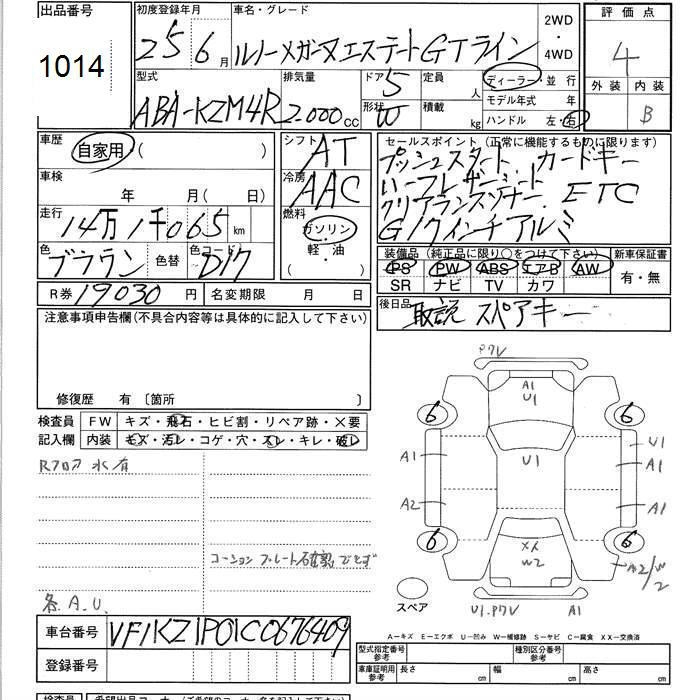 出品番号 1014
初度登録年月 25 6月
車名・グレード ルノーメガーヌエステートGTライン
2WD・4WD
評価点 4
外装 内装 B
型式 ABA-KZM4R
排気量 2.000cc
ドア 5
形状 W
定員 人
積載 kg
ディーラー・並行
モデル年式 年
ハンドル 左・右
車歴 自家用( )
車検 年 月( 日)
走行 14万1千065km
色 ブラウン 色替 色コード D17
シフト AT
冷房 AAC
燃料 ガソリン
軽・油
( )
セールスポイント(正常に機能するものに限ります)
プッシュスタート カードキー
ハーフレザーシート
クリアランスソナー ETC
G 17インチアルミ
装備品(純正品に限り○をつけて下さい) 新車保証書
PS PW ABS エアB AW
SR ナビ TV カワ
有・無
R券 19030円 名変期限 月 日
後日品 取説 スペアキー
注意事項申告欄(不具合内容等は具体的に記入して下さい)
修復歴 有 〔箇所 〕
検査員記入欄 FW キズ・飛石・ヒビ割・リペア跡・×要
内装 キズ・汚レ・コゲ・穴・スレ・キレ・破レ
Rフロア 水有
コーションプレート確認できず
各A.U.
P7V
A1
U1
6 6
U1
A1 U1
A1
A2 A1
6 6
XX
W2
A2/W2
スペア
U1.P7V A1
A-キズ E-エクボ U-凹み W-補修跡 S-サビ C-腐食 XX-交換済
車台番号 VF1KZ1P01C0676409
登録番号
型式指定番号 参考 種別区分番号 参考
車庫証明用 参考 長さ cm 幅 cm 高さ cm
検査員 希望出品コーナー